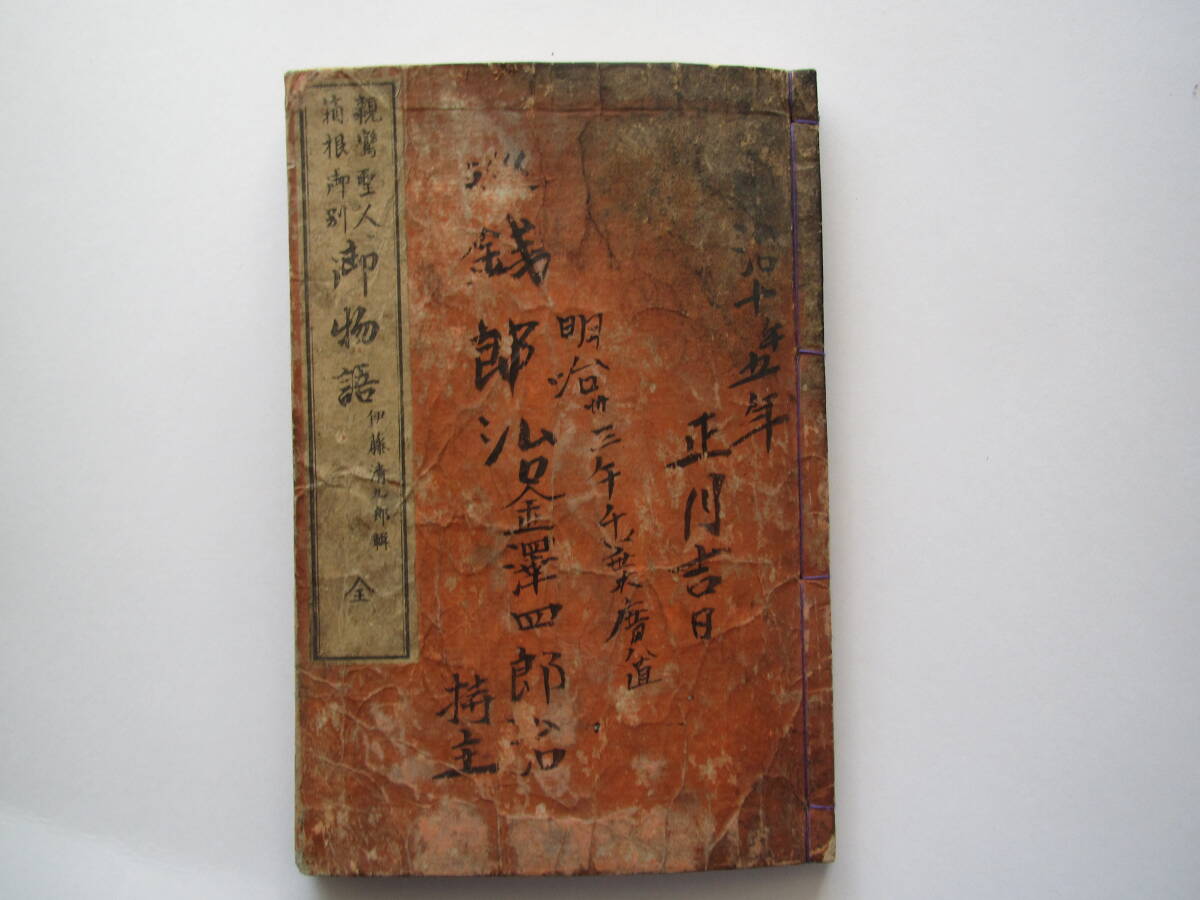 治十年五年
正月吉日
明治卅三年千葉
銭郎治金澤四郎治
持主
親鸞聖人
箱根御別
御物語
伊藤清九郎輯
全